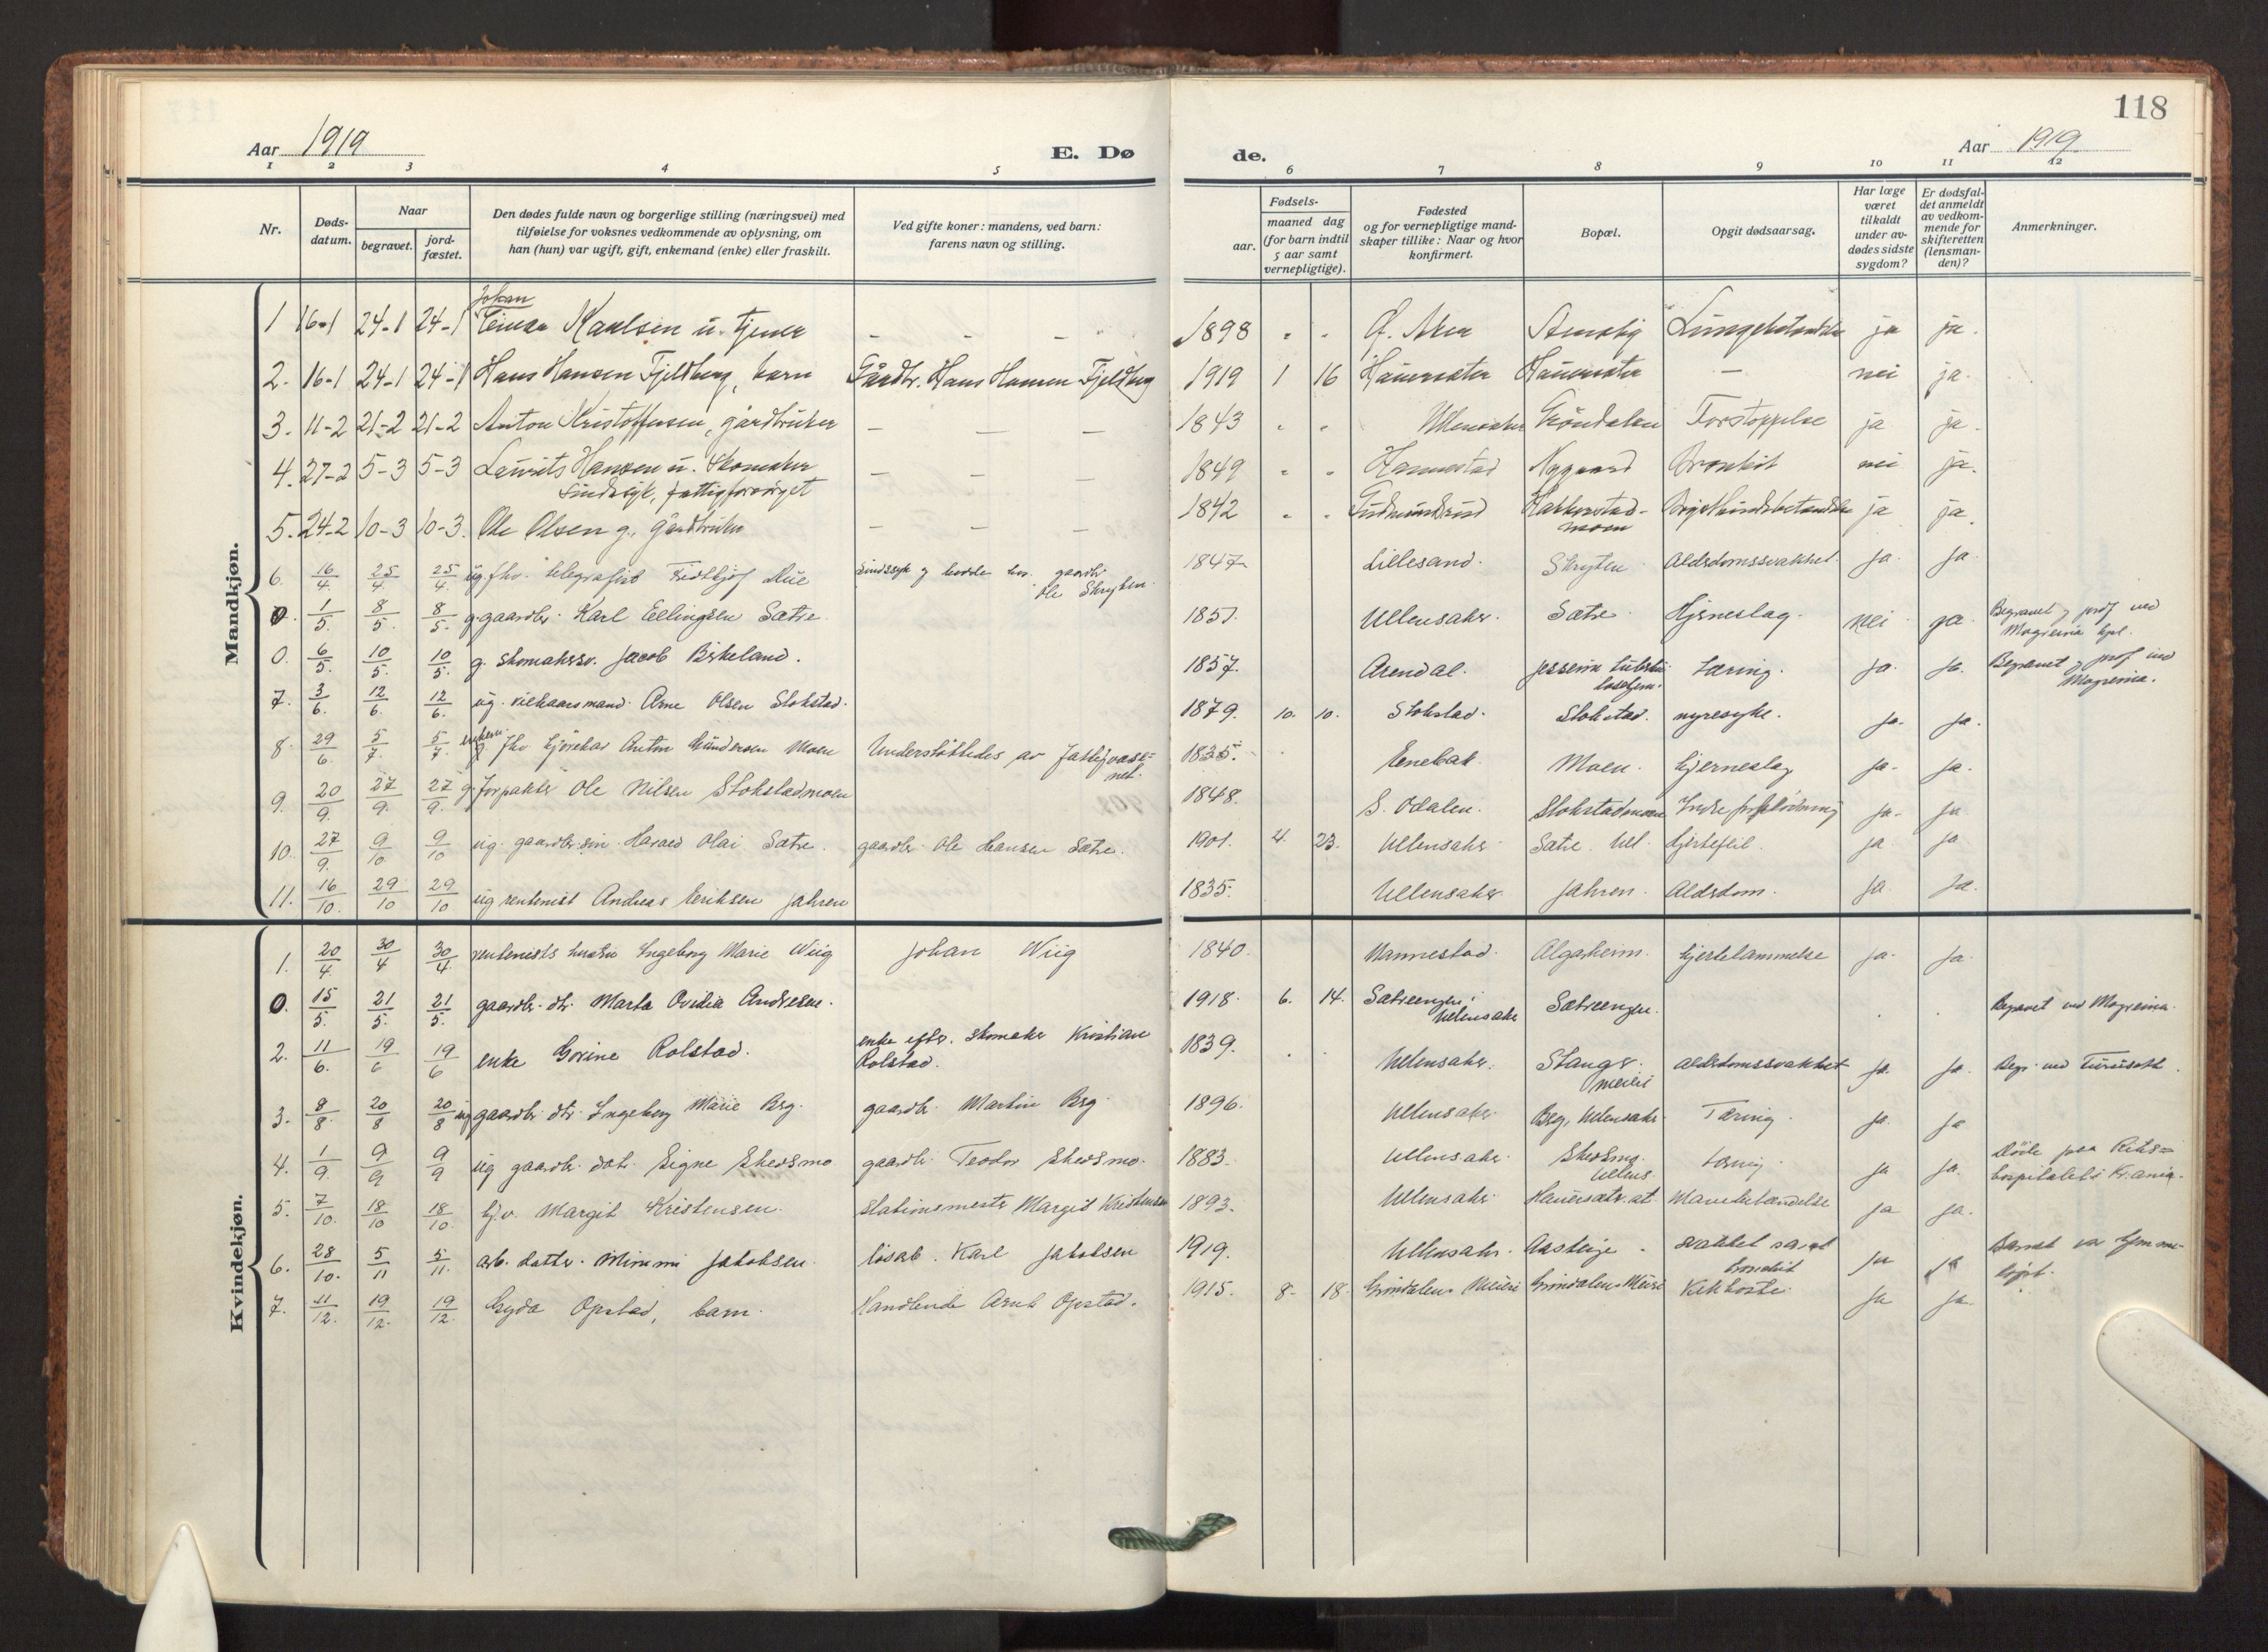 118
Aar 1919 E. Dø de. Aar 1919
1 2 3 4 5 6 7 8 9 10 11 12
Nr. Døds-datum. Naar begravet. jord-fæstet. Den dødes fulde navn og borgerlige stilling (næringsvei) med tilføielse for voksnes vedkommende av oplysning, om han (hun) var ugift, gift, enkemand (enke) eller fraskilt. Ved gifte koner: mandens, ved barn: farens navn og stilling. Fødsels- aar. maaned dag (for barn indtil 5 aar samt vernepligtige). Fødested og for vernepligtige mandskaper tillike: Naar og hvor konfirmert. Bopæl. Opgit dødsaarsag. Har læge været tilkaldt under avdødes sidste sygdom? Er dødsfaldet anmeldt av vedkommende for skifteretten (lensmanden)? Anmerkninger.
Mandkjøn.
1 16-1 24-1 24-1 Johan Karlsen u. tjener - - - 1898 - - Ø. Aker ja ja.
2. 16-1 24-1 24-1 Hans Hansen Fjeldberg, barn Gårdbr. Hans Hansen Fjeldberg 1919 1 16 Hauersæter Hauersæter - nei ja.
3. 11-2 21-2 21-2 Anton Kristoffersen, gårdbruker - - - 1843 - - Ullensaker Gröndalen Forstoppelse ja ja.
4. 27-2 5-3 5-3 Laurits Hansen u. Skomaker - - - 1849 - - Nygaard Bronkit nei ja.
Sindssyk, fattigforsörget
5. 24-2 10-3 10-3. Ole Olsen g. Gårdbruker - - - 1842 - - Gudmundsrud moen Brysthindebetændelse ja ja.
6. 16/4. 25/4. 25/4. ug. fhv. telegrafist Fridthjof Sindssyk og hadde hos gaardbr. Ole Skryten. 1847 Lillesand. Skryten Alderdomssvakhet. ja. ja.
0. 1/5. 8/5. 8/5. g. gaardbr. Karl Ellingsen Sætre. 1851. Ullensaker. Sætre. Hjerneslag. nei ja. Begravet og jordf ved Mogreina kpl.
0. 6/5. 10/5. 10/5. g. skomakersv. Jacob Birkeland. 1857. Arendal. Jessheim tuberkuloselhem. tæring. ja. ja. Begravet og jordf ved Mogreina.
7. 3/6. 12/6. 12/6. ug. vilkaarsmand Arne Olsen Slokstad. 1879. 10. 10. Slokstad. Slokstad. nyresyke. ja. ja.
8. 29/6. 5/7. 5/7. enkem. fhv kjörekar Anton Gundersen Moen Understöttedes av fattigvæsenet. 1835. Enebak Moen. hjerneslag ja. ja.
9. 20/9. 27/9. 27/9. g. forpakter Ole Nilsen Slokstadmoen 1848. S. Odalen. Slokstadmoen Indre forblödning ja. ja
10. 27/9. 9/10 9/10 ug. gaardbr. sön Harald Olai Sætre. gaardbr. Ole Hansen Sætre. 1901. 4. 23. Ullensaker Sætre. Ull. hjertefeil. ja ja
11. 16/10. 29/10 29/10 ug rentenist Andreas Eriksen Jahren 1835. Ullensaker. Jahren. Alderdom. ja. ja.
Kvindekjøn.
1. 20/4. 30/4 30/4. rentenists hustru Ingeborg Marie Wiig Johan Wiig 1840. Mannestad. Algarheim. hjertelammelse ja. ja.
0. 15/5. 21/5. 21/5. gaardbr. dtr. Marta Ovidia Andresen. 1918. 6. 14. Sætreengen i Ullensaker Sætreengen. Begravet ved Mogreina.
2. 11/6. 19/6 19/6 enke Gorine Rolstad. enke efter. skomaker Kristian Rolstad. 1839. Ullensaker. Stangr. meieri alderdomssvakhet ja. ja. Begr. ved Furuseth.
3. 8/8. 20/8 20/8 ug gaardbr. dtr. Ingeborg Marie Berg. gaardbr. Martin Berg 1896. Ullensaker Berg, Ullensaker. Tæring. ja. ja
4. 1/9. 9/9 9/9 ug gaardbr. datr. Signe Skedsmo gaardbr. Teodor Skedsmo. 1883. Ullensaker. Skedsmo. Ullens. tæring. ja ja. Döde paa Rikshospitalet i Kr.ania.
5. 7/10. 18/10 18/10. Margit Kristensen. stationsmester Margit Kristensen 1893. Ullensaker Hauersæter. st. Mavebetændelse ja ja.
6. 28/10. 5/11 5/11. arb. datter. Mimmi Jakobsen. lösarb. Karl Jakobsen 1919. Ullensaker. svakhet samt bronkit ja ja Barnet var hjemmedöpt.
7. 11/12. 19/12. 19/12. Gyda Opstad, barn. Handlende Arnt Opstad. 1915. 8. 18. Gröndalens Meieri Gröndalens Meieri Kikhoste. ja ja.